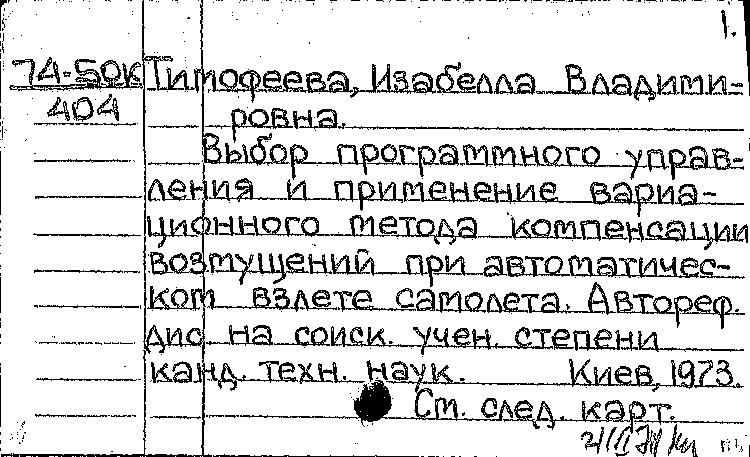 1.
74-50к Тимофеева, Изабелла Владими-
404 ровна.
Выбор программного управ-
ления и применение вариа-
ционного метода компенсации
возмущений при автоматичес-
ком взлете самолета. Автореф.
дис. на соиск. учен. степени
канд. техн. наук. Киев, 1973.
См. след. карт.